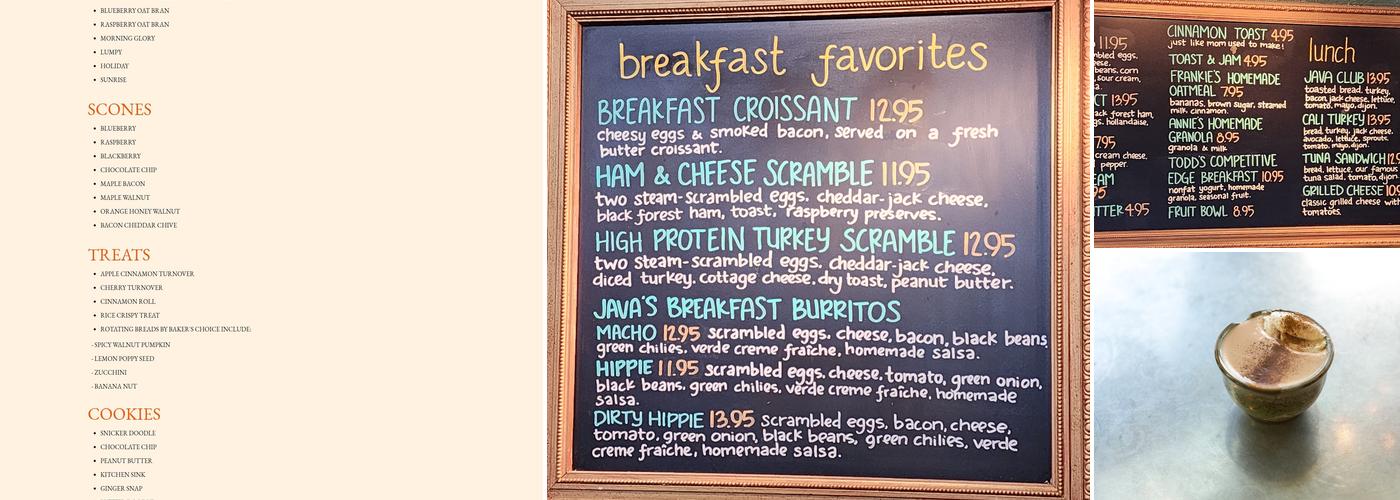 BLUEBERRY OAT BRAN
RASPBERRY OAT BRAN
MORNING GLORY
LUMPY
HOLIDAY
SUNRISE
SCONES
BLUEBERRY
RASPBERRY
BLACKBERRY
CHOCOLATE CHIP
MAPLE BACON
MAPLE WALNUT
ORANGE HONEY WALNUT
BACON CHEDDAR CHIVE
TREATS
APPLE CINNAMON TURNOVER
CHERRY TURNOVER
CINNAMON ROLL
RICE CRISPY TREAT
ROTATING BREADS BY BAKER'S CHOICE INCLUDE:
- SPICY WALNUT PUMPKIN
- LEMON POPPY SEED
- ZUCCHINI
- BANANA NUT
COOKIES
SNICKER DOODLE
CHOCOLATE CHIP
PEANUT BUTTER
KITCHEN SINK
GINGER SNAP
breakfast favorites
BREAKFAST CROISSANT 12.95
cheesy eggs & smoked bacon, served on a fresh
butter croissant.
HAM & CHEESE SCRAMBLE 11.95
two steam-scrambled eggs. cheddar-jack cheese,
black forest ham, toast, raspberry preserves.
HIGH PROTEIN TURKEY SCRAMBLE 12.95
two steam-scrambled eggs. cheddar-jack cheese.
diced turkey. cottage cheese. dry toast, peanut butter.
JAVA'S BREAKFAST BURRITOS
MACHO 12.95 scrambled eggs. cheese, bacon, black beans,
green chilies. verde creme fraîche, homemade salsa.
HIPPIE 11.95 scrambled eggs. cheese, tomato, green onion,
black beans. green chilies, verde creme fraîche, homemade
salsa.
DIRTY HIPPIE 13.95 scrambled eggs, bacon, cheese,
tomato, green onion, black beans, green chilies, verde
creme fraîche, homemade salsa.
11.95
eggs,
beans, corn
sour cream,
13.95
forest ham,
hollandaise,
7.95
cream cheese,
pepper.
4.95
CINNAMON TOAST 4.95
just like mom used to make!
TOAST & JAM 4.95
FRANKIE'S HOMEMADE
OATMEAL 7.95
bananas, brown sugar, steamed
milk, cinnamon.
ANNIE'S HOMEMADE
GRANOLA 8.95
granola & milk
TODD'S COMPETITIVE
EDGE BREAKFAST 10.95
nonfat yogurt, homemade
granola, seasonal fruit.
FRUIT BOWL 8.95
lunch
JAVA CLUB 13.95
toasted bread, turkey,
bacon, jack cheese, lettuce,
tomato, mayo, dijon.
CALI TURKEY 13.95
bread, turkey, jack cheese,
avocado, lettuce, sprouts,
tomato, mayo, dijon.
TUNA SANDWICH
bread, lettuce, our famous
tuna salad, tomato, dijon
GRILLED CHEESE
classic grilled cheese with
tomatoes.